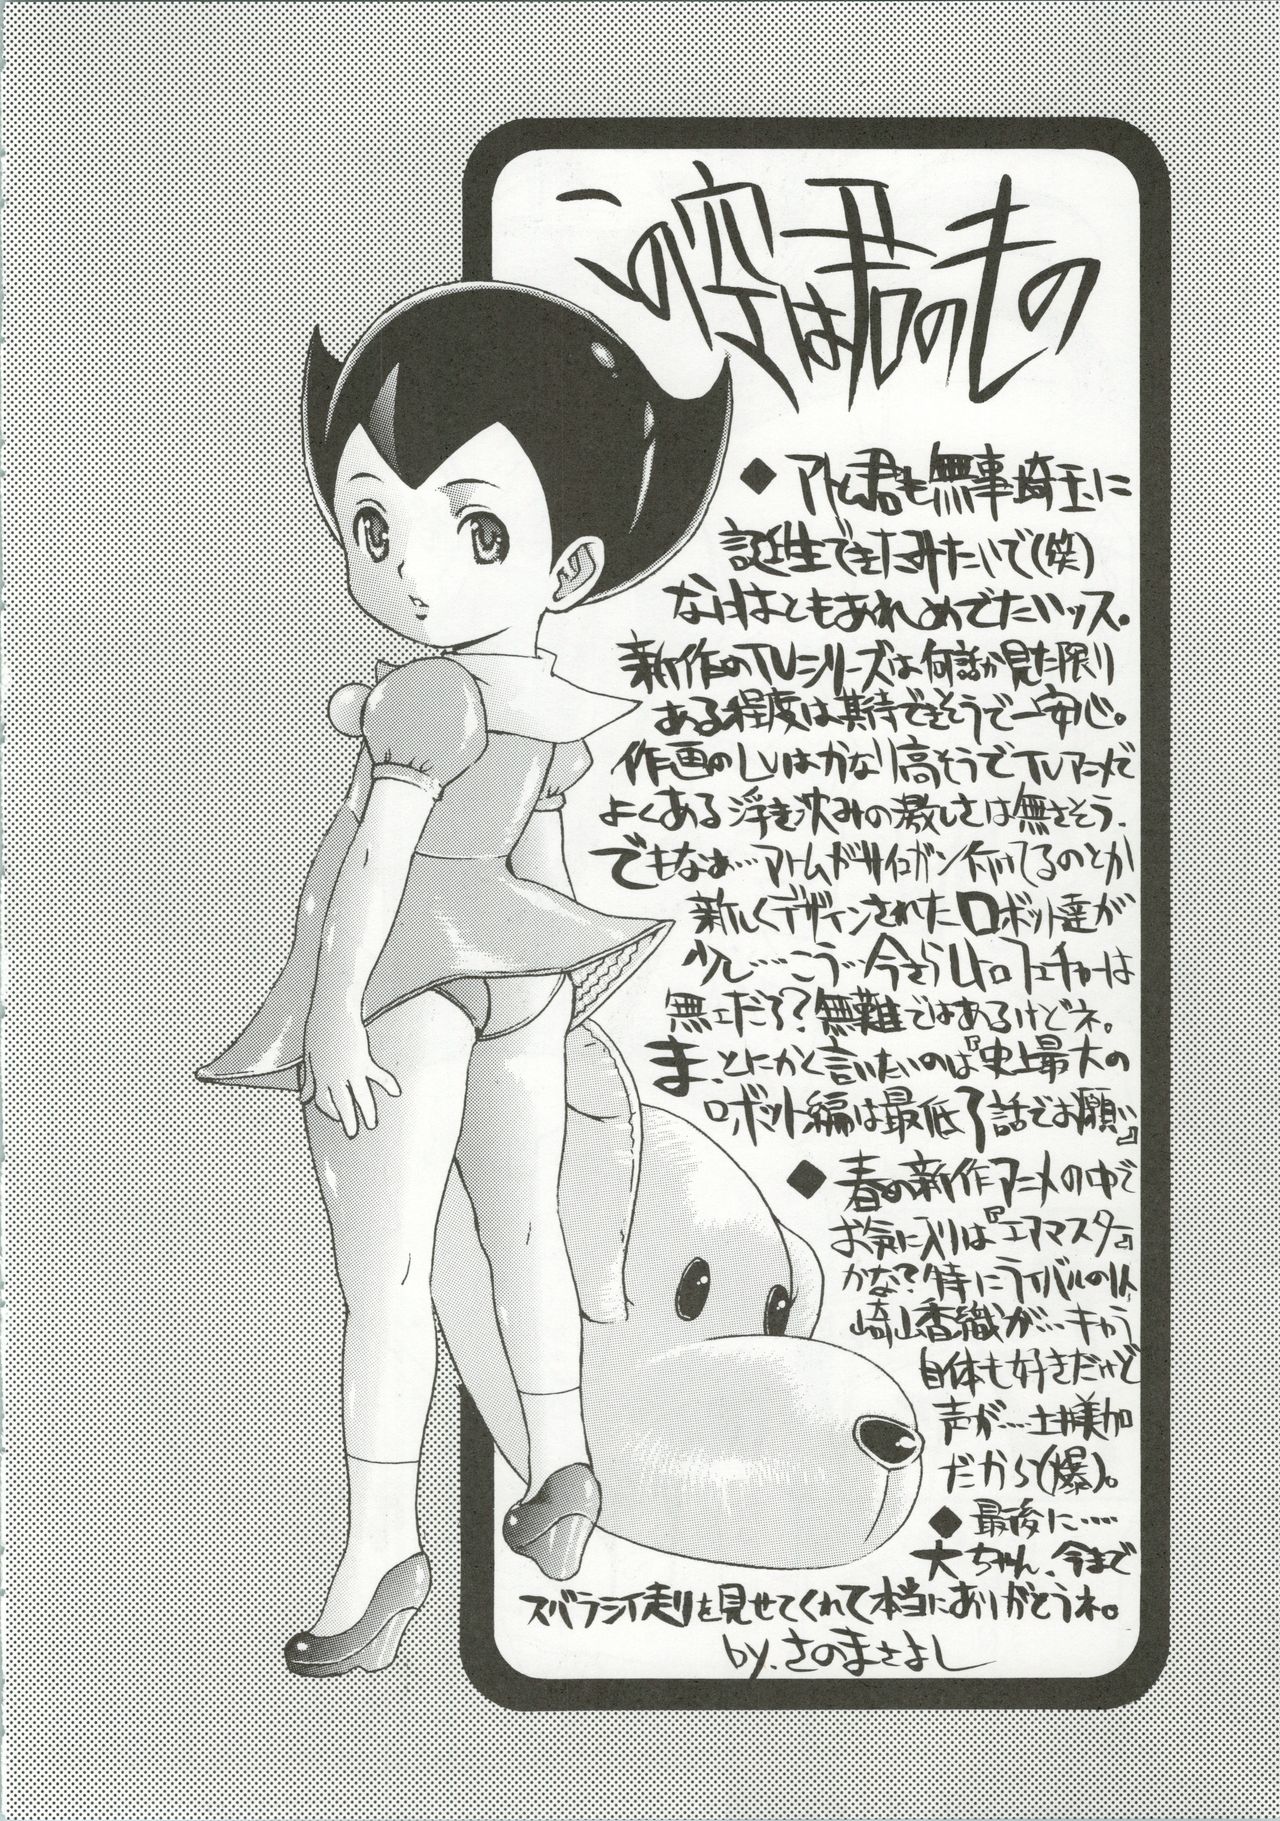 この空は君のもの
◆アトム君も無事埼玉に
誕生できたみたいで(笑)
なにはともあれめでたいッス。
新作のTVシリーズは何話か見た限り
ある程度は期待できそうで一安心。
作画のLvはかなり高そうでTVアニメで
よくある浮き沈みの激しさは無さそう。
でもなぁ…アトムがサイコガン付けてるのとか
新しくデザインされたロボット達が
少し…こう…今さらレトロフューチャーは
無ェだろ?無難ではあるけどネ。
ま、とにかく言いたいのは『史上最大の
ロボット編は最低7話でお願い』
◆春の新作アニメの中で
お気に入りは『エアマスター』
かな?特にライバルの
崎山香織が…キャラ
自体も好きだけど
声が…
だから(爆)。
◆最後に……
大ちゃん、今まで
スバラシイ走りを見せてくれて本当にありがとうネ。
by.さのまさよし